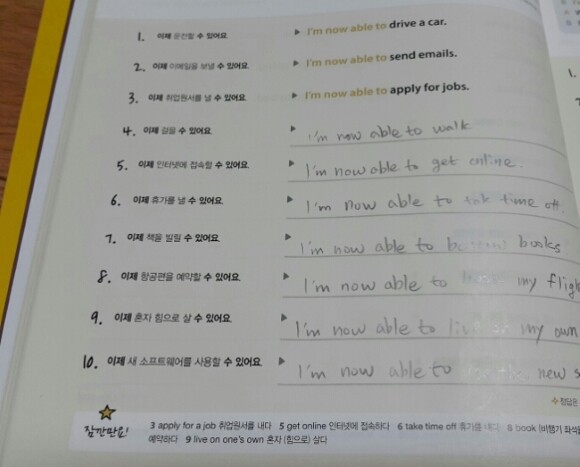 1. 이제 운전할 수 있어요. ▶ I'm now able to drive a car.
2. 이제 이메일을 보낼 수 있어요. ▶ I'm now able to send emails.
3. 이제 취업원서를 낼 수 있어요. ▶ I'm now able to apply for jobs.
4. 이제 걸을 수 있어요. ▶ I'm now able to walk
5. 이제 인터넷에 접속할 수 있어요. ▶ I'm now able to get online.
6. 이제 휴가를 낼 수 있어요. ▶ I'm now able to time off.
7. 이제 책을 빌릴 수 있어요. ▶ I'm now able to books
8. 이제 항공편을 예약할 수 있어요. ▶ I'm now able to my
9. 이제 혼자 힘으로 살 수 있어요. ▶ I'm now able to my own
10. 이제 새 소프트웨어를 사용할 수 있어요. ▶ I'm now able to new
정답은
잠깐만요!
3 apply for a job 취업원서를 내다 5 get online 인터넷에 접속하다 6 take time off 휴가를 내다 8 book (비행기 좌석
예약하다 9 live on one's own 혼자 (힘으로) 살다